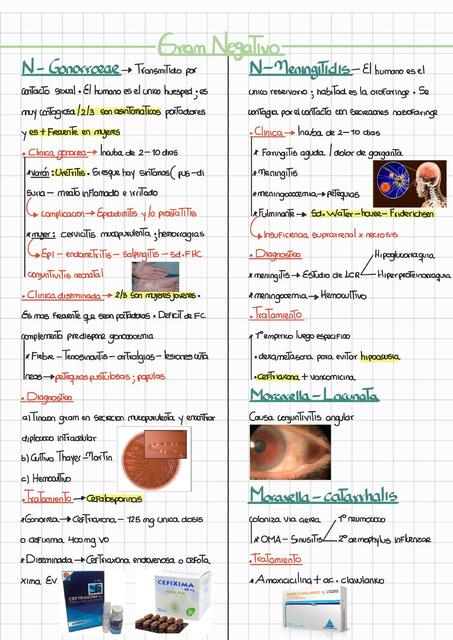 Gram Negativo
N- Gonorroeae → Transmitido por
contacto sexual • El humano es el unico huesped ; es
muy contagiosa / 2/3 son asintomaticos portadores
y es + frequente en mujeres
• Clinica gonorrea → Incuba de 2-10 dias
* Varón : Uretritis. Si es que hay sintomas ( pus - di
suria - meato inflamado e irritado
complicacion → Epididimitis y/o prostatitis
* mujer : cervicitis mucopurulenta ; hemorragias
Epi - endometritis - salpingitis - sd. FHC
conjuntivitis neonatal
• Clinica diseminada → 2/3 son mujeres jovenes •
Es mas frecuente que sean portadoras • Deficit de FC
complemento predispone gonococemia
* Fiebre - Tenosinovitis - artralgias - lesiones cuta
neas → petequias pustulosas ; papulas
• Diagnostico
a) Tincion gram en secrecion mucopurulenta y encontrar
diplococo intracelular
b) Cultivo Thayer-Martin
c) Hemocultivo
• Tratamiento → Cefalosporinas
* Gonorrea → Ceftriaxona - 125 mg unica dosis
o cefixima 400 mg VO
* Diseminada → Ceftriaxona endovenosa o cefota
xima Ev
CEFTRIAXONA
CEFIXIMA
N- Meningitidis → El humano es el
unico reservorio ; habitad es la orofaringe • Se
contagia por el contacto con secreciones nasofaringe
• Clinica → Incuba de 2-10 dias
* Faringitis aguda / dolor de garganta
* Meningitis
* meningococemia → petequias
* Fulminante → Sd. Water-house-Friderichsen
Insuficiencia suprarrenal x necrosis
• Diagnostico
Hipoglucorraquia
* meningitis → Estudio de LCR
Hiperproteinorraquia
* meningocemia → Hemocultivo
• Tratamiento
* 1º empirico luego especifico
• dexametasona para evitar hipoacusia
• Ceftriaxona + vancomicina
Moraxella - Lacunata
Causa conjuntivitis angular
Moraxella - catarrhalis
coloniza via aerea
1º neumococo
* OMA - Sinusitis
2º aemophylus influenzae
• Tratamiento
* Amoxicilina + ac. clavulanico